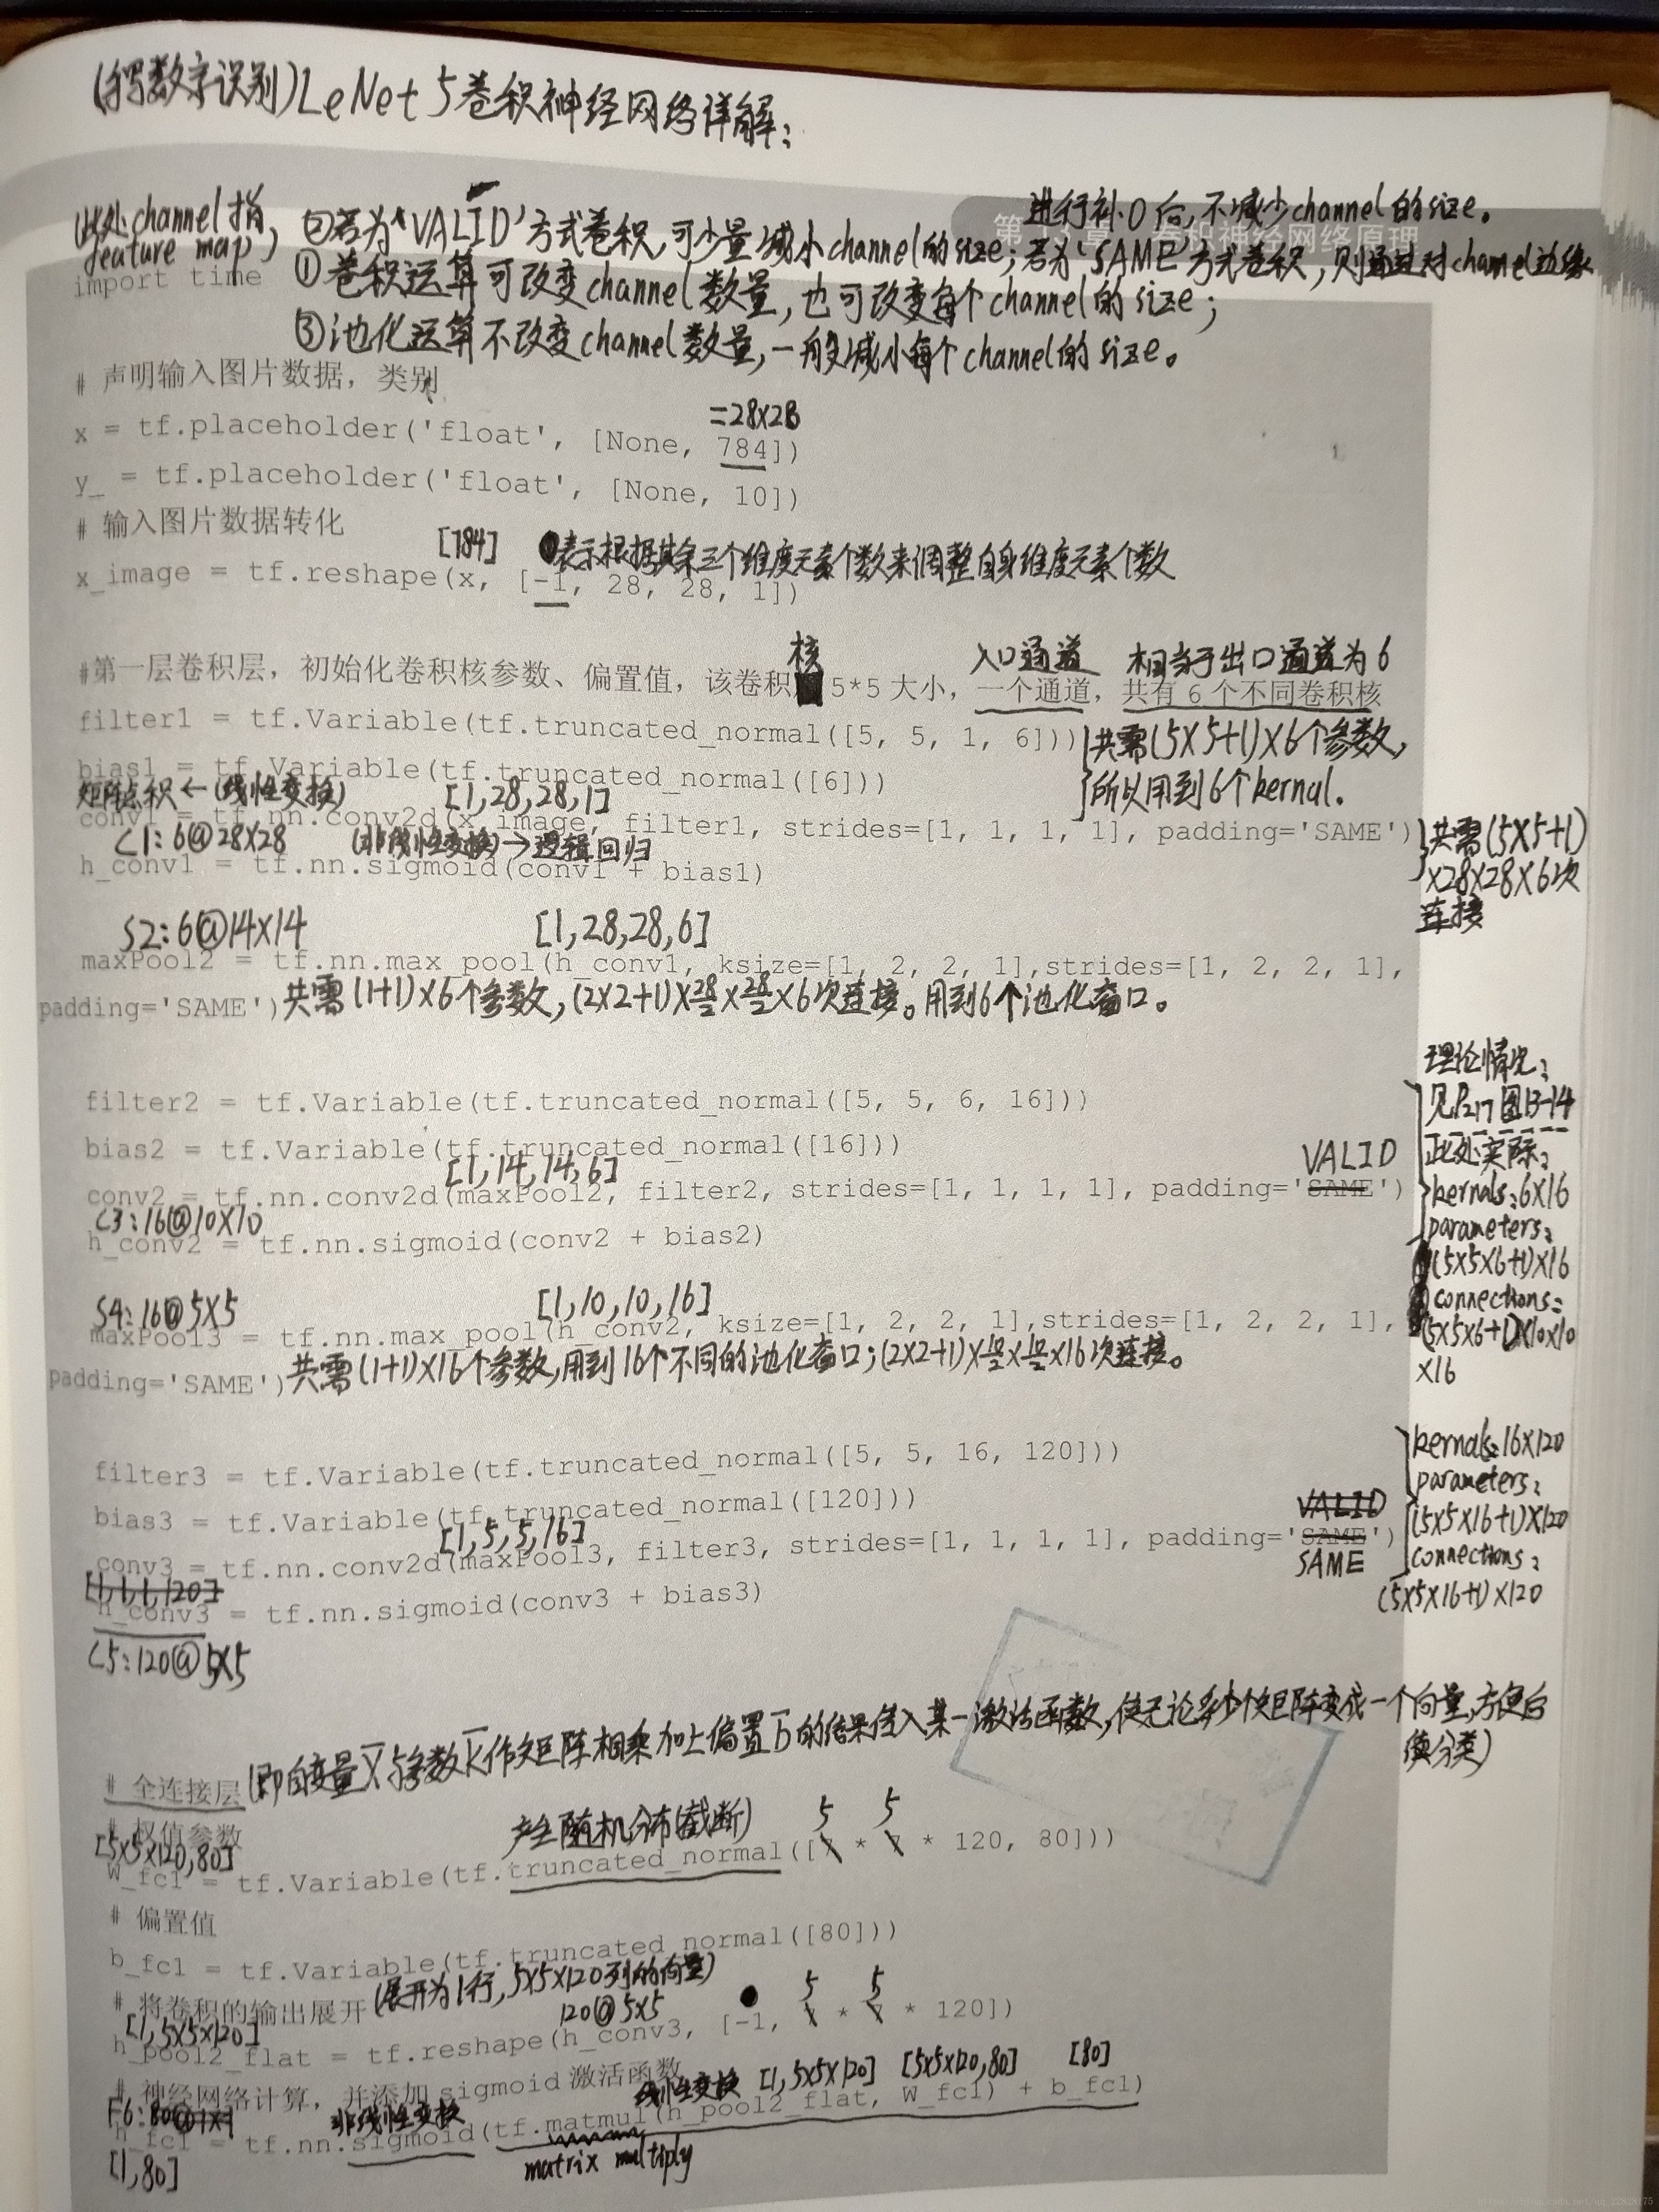 (手写数字识别)LeNet 5卷积神经网络详解:
(此处channel指
feature map)
进行补0后,不减少channel的size。
卷积神经网络原理
②若为'VALID'方式卷积,可少量减小channel的size;若为'SAME'方式卷积,则通过对channel边缘
①卷积运算可改变channel数量,也可改变每个channel的size;
import time
③池化运算不改变channel数量,一般减小每个channel的size。
# 声明输入图片数据,类别
=28×28
x = tf.placeholder('float', [None, 784])
y_ = tf.placeholder('float', [None, 10])
# 输入图片数据转化
[784] 表示根据其余三个维度元素个数来调整自身维度元素个数
x_image = tf.reshape(x, [-1, 28, 28, 1])
核 入口通道 相当于出口通道为6
#第一层卷积层,初始化卷积核参数、偏置值,该卷积 5*5 大小,一个通道,共有 6 个不同卷积核
filter1 = tf.Variable(tf.truncated_normal([5, 5, 1, 6]))
共需(5×5+1)×6个参数,
bias1 = tf.Variable(tf.truncated_normal([6]))
所以用到6个kernal.
矩阵点积←(线性变换) [1,28,28,1]
conv1 = tf.nn.conv2d(x_image, filter1, strides=[1, 1, 1, 1], padding='SAME')
共需(5×5+1)
×28×28×6次
连接
C1:6@28×28 (非线性变换)→逻辑回归
h_conv1 = tf.nn.sigmoid(conv1 + bias1)
S2:6@14×14 [1,28,28,6]
maxPool2 = tf.nn.max_pool(h_conv1, ksize=[1, 2, 2, 1],strides=[1, 2, 2, 1],
padding='SAME')共需(1+1)×6个参数,(2×2+1)×28/2×28/2×6次连接。用到6个池化窗口。
理论情况:
见P217图13-14
此处实际:
kernals:6×16
parameters:
(5×5×6+1)×16
connections:
(5×5×6+1)×10×10
×16
filter2 = tf.Variable(tf.truncated_normal([5, 5, 6, 16]))
bias2 = tf.Variable(tf.truncated_normal([16]))
[1,14,14,6] VALID
conv2 = tf.nn.conv2d(maxPool2, filter2, strides=[1, 1, 1, 1], padding='SAME')
C3:16@10×10
h_conv2 = tf.nn.sigmoid(conv2 + bias2)
S4:16@5×5 [1,10,10,16]
maxPool3 = tf.nn.max_pool(h_conv2, ksize=[1, 2, 2, 1],strides=[1, 2, 2, 1],
padding='SAME')共需(1+1)×16个参数,用到16个不同的池化窗口;(2×2+1)×10/2×10/2×16次连接。
kernals:16×120
parameters:
(5×5×16+1)×120
connections:
(5×5×16+1)×120
filter3 = tf.Variable(tf.truncated_normal([5, 5, 16, 120]))
bias3 = tf.Variable(tf.truncated_normal([120]))
[1,5,5,16] VALID
conv3 = tf.nn.conv2d(maxPool3, filter3, strides=[1, 1, 1, 1], padding='SAME')
SAME
[1,1,1,120]
h_conv3 = tf.nn.sigmoid(conv3 + bias3)
C5:120@5×5
# 全连接层(即自变量X与参数K作矩阵相乘加上偏置b的结果传入某一激活函数,使无论多少个矩阵变成一个向量,方便后
续分类)
# 权值参数
产生随机分布(截断) 5 5
[5×5×120,80]
W_fc1 = tf.Variable(tf.truncated_normal([7 * 7 * 120, 80]))
# 偏置值
b_fc1 = tf.Variable(tf.truncated_normal([80]))
# 将卷积的输出展开(展开为1行,5×5×120列的向量)
[1,5×5×120] 120@5×5 5 5
h_pool2_flat = tf.reshape(h_conv3, [-1, 7 * 7 * 120])
# 神经网络计算,并添加 sigmoid 激活函数
线性变换 [1,5×5×120] [5×5×120,80] [80]
F6:80@1×1 非线性变换
h_fc1 = tf.nn.sigmoid(tf.matmul(h_pool2_flat, W_fc1) + b_fc1)
[1,80] matrix multiply